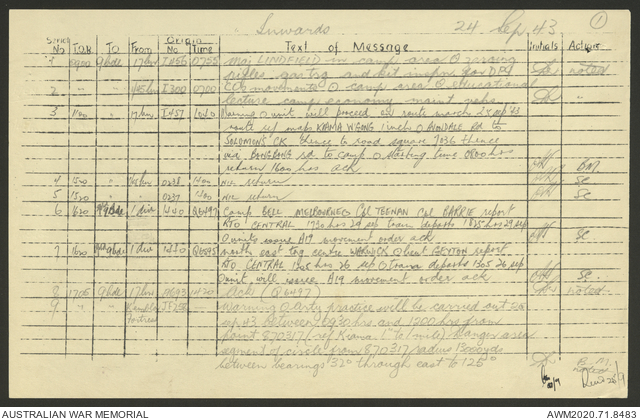 Inwards 24 Sep 43 1
Serial No T.O.R. TO From Origin No Time Text of Message Initials Action
1 0900 9 bde 17 bn I456 0755 Maj LINDFIELD in camp area O zeroing
rifles gas trg and kit inspn noted
2 45 bn I300 0700 COs movements O camp area O educational
lecture camp economy maint vehs
3 1100 17 bn I457 1040 Warning O unit will proceed on route march 25 sep 43
route ref map KIAMA WGONG 1 inch O AVONDALE Rd to
SOLOMONS CK thence to road square 9036 thence
via BONGBONG rd to camp O starting time 0800 hrs
return 1600 hrs ack BM
4 1520 45 bn 0238 1400 NIL return SC
5 1520 0237 1400 NIL return SC
6 1620 9 bde 1 div 1440 Q6497 Camp BELL MELBOURNE Cpl TEENAN Cpl BARRIE report
RTO CENTRAL 1730 hrs 29 sep train departs 1825 hrs 29 sep
O units issue A19 movement order ack SC
7 1620 9 bde 1 div 1410 Q6495 north east trg centre WARWICK O lieut report
RTO CENTRAL 1205 hrs 26 sep O train departs 1305 26 sep
O unit will issue A19 movement order ack SC
8 1705 9 bde 17 bn 1420 (Q6497) noted
9 Kembla Fortress Warning O Arty practice will be carried out 25
sep 43 between 0930 hrs and 1200 hrs from
point 870317 (ref Kiama 1" to 1 mile) danger area
segment of circle from 870317 radius 13000 yds
between bearings 32° through east to 125° B.M.
AUSTRALIAN WAR MEMORIAL AWM2020.71.8483